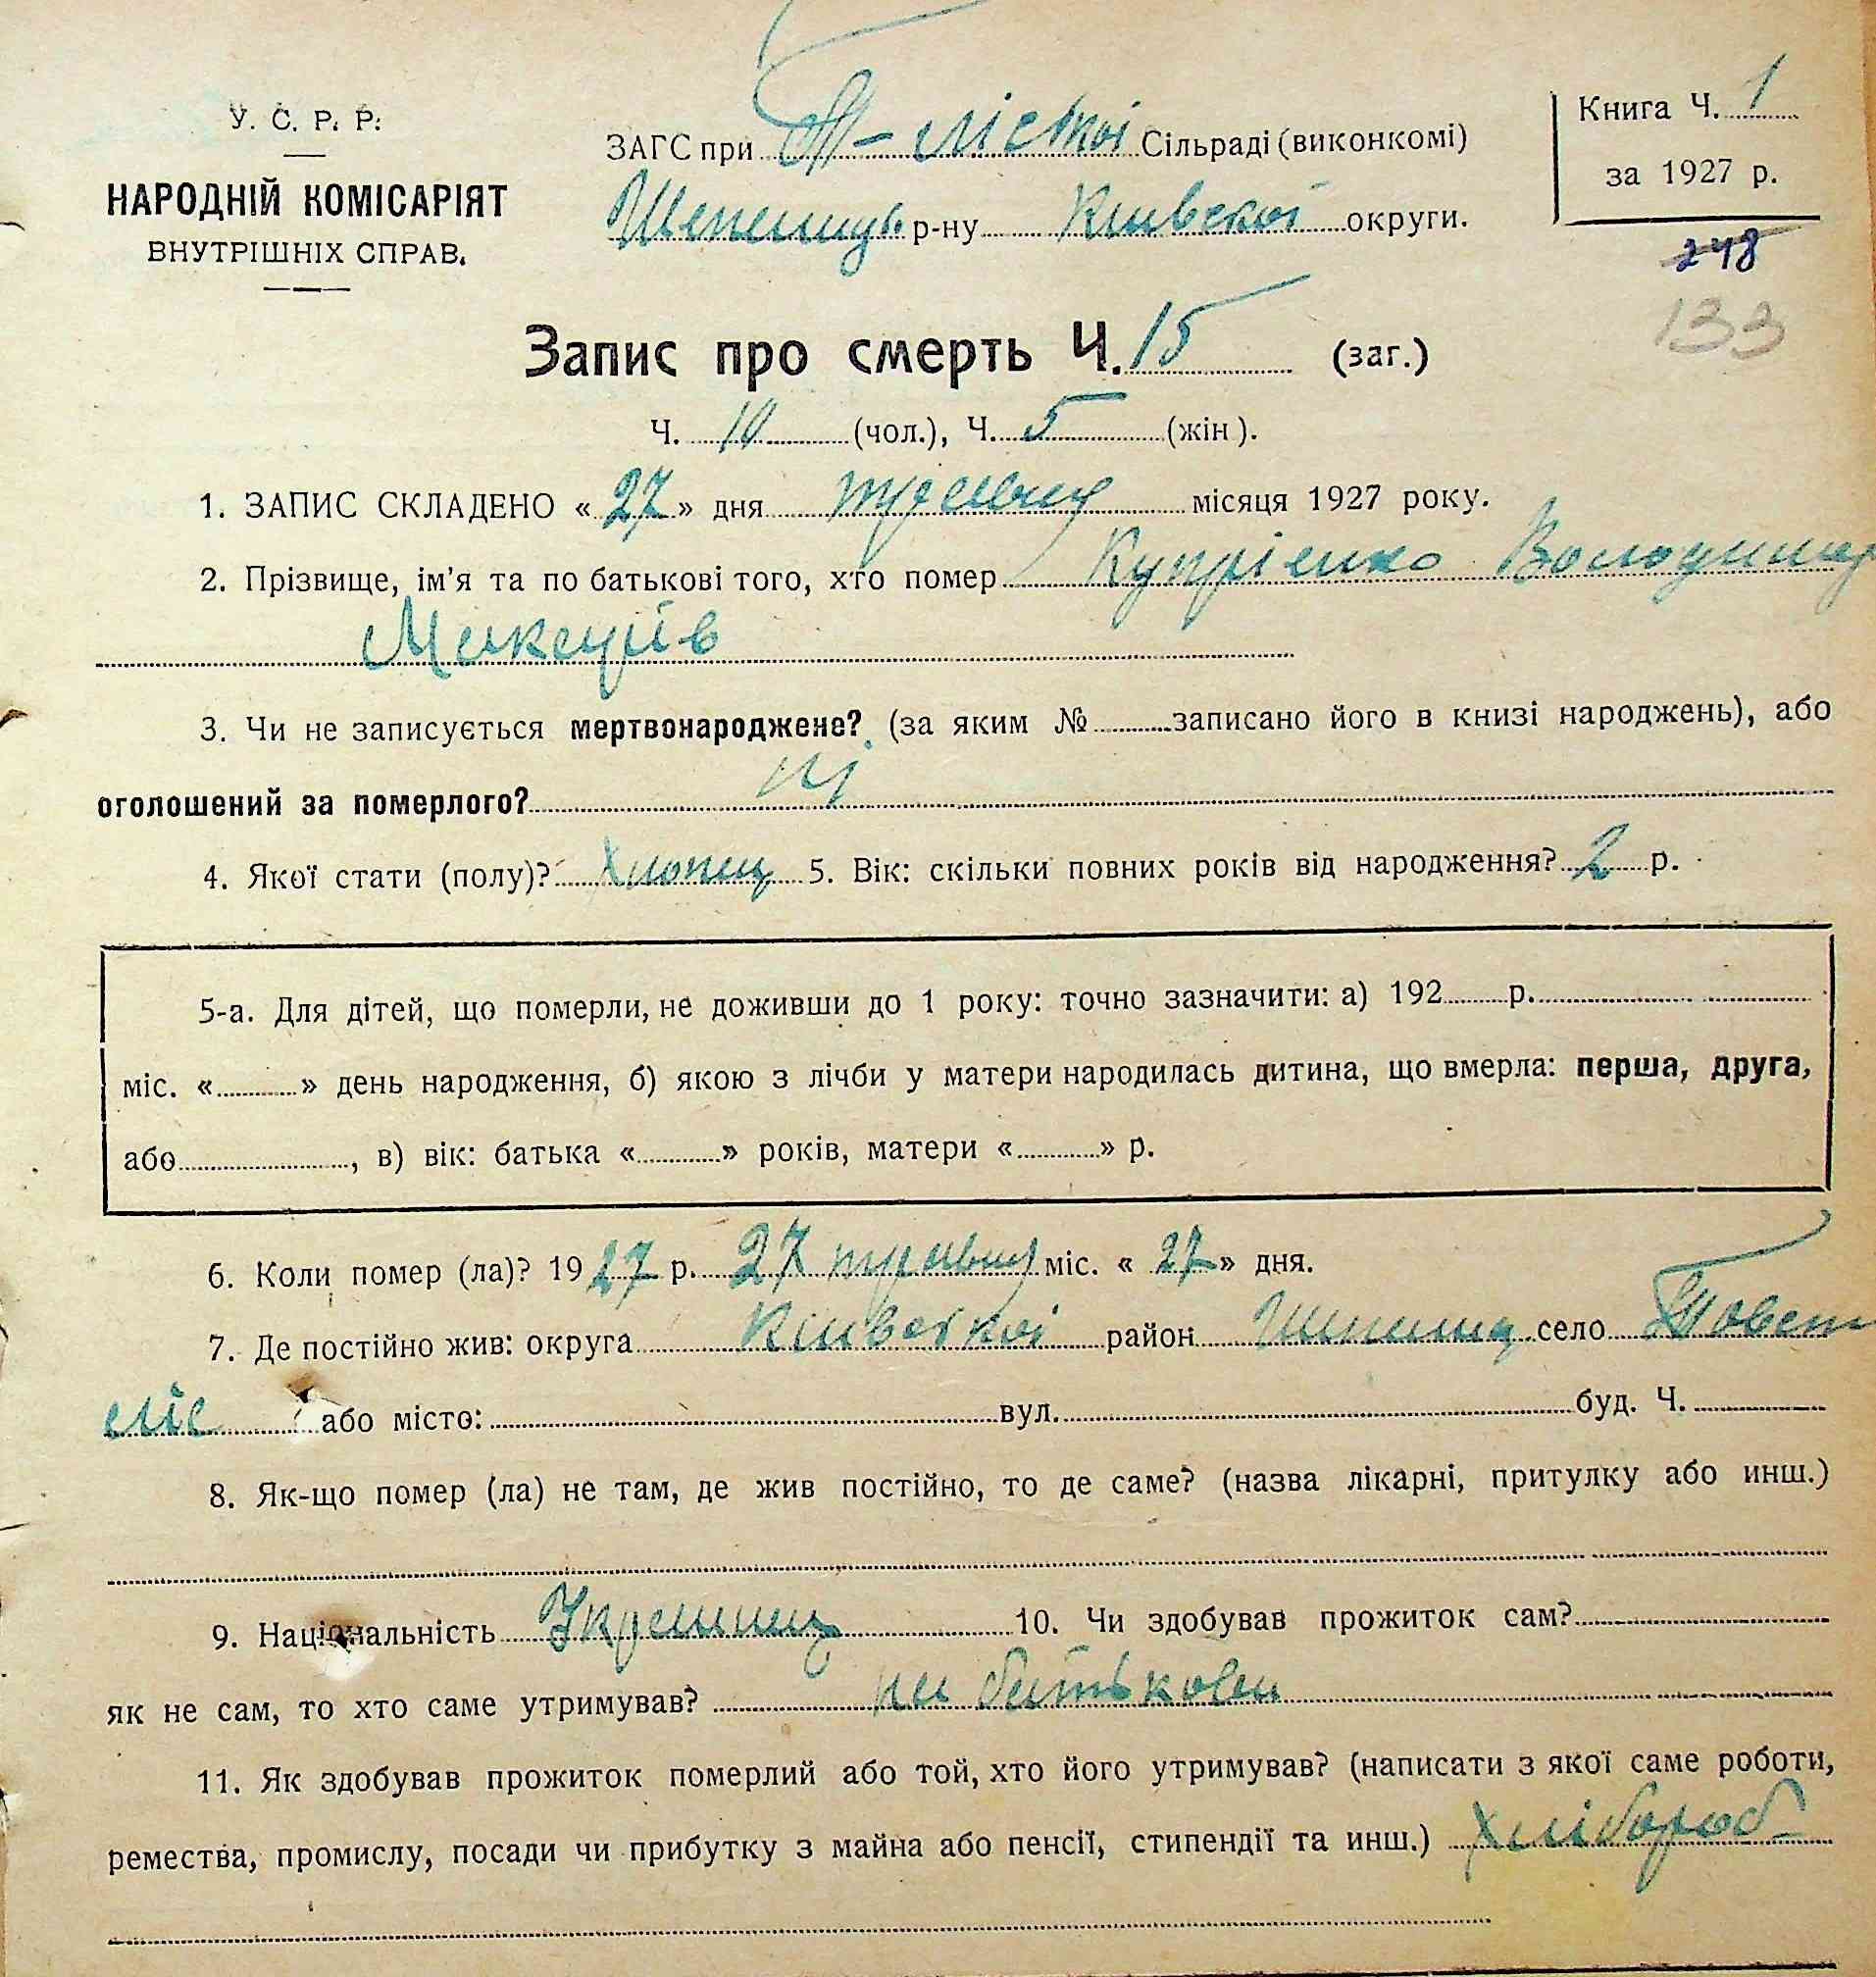 У. С. Р. Р.
НАРОДНІЙ КОМІСАРІЯТ
ВНУТРІШНІХ СПРАВ.
ЗАГС при Т-ліській Сільраді (виконкомі)
Шепелиць р-ну Київської округи.
Книга Ч. 1
за 1927 р.
248
133
Запис про смерть Ч. 15 (заг.)
Ч. 10 (чол.), Ч. 5 (жін).
1. ЗАПИС СКЛАДЕНО « 27 » дня травня місяця 1927 року.
2. Прізвище, ім'я та по батькові того, хто помер Купріенко Володимир
3. Чи не записується мертвонароджене? (за яким № записано його в книзі народжень), або
оголошений за померлого? ні
4. Якої стати (полу)? Хлопец 5. Вік: скільки повних років від народження? 2 р.
5-а. Для дітей, що померли, не доживши до 1 року: точно зазначити: а) 192 р.
міс. « » день народження, б) якою з лічби у матери народилась дитина, що вмерла: перша, друга,
або , в) вік: батька « » років, матери « » р.
6. Коли помер (ла)? 1927 р. 27 травня міс. « 27 » дня.
7. Де постійно жив: округа Київської район Шепелиц село Товст
ліс або місто: вул. буд. Ч.
8. Як-що помер (ла) не там, де жив постійно, то де саме? (назва лікарні, притулку або инш.)
9. Національність Украинец 10. Чи здобував прожиток сам?
як не сам, то хто саме утримував? на батькови
11. Як здобував прожиток померлий або той, хто його утримував? (написати з якої саме роботи,
ремества, промислу, посади чи прибутку з майна або пенсії, стипендії та инш.) Хлібороб